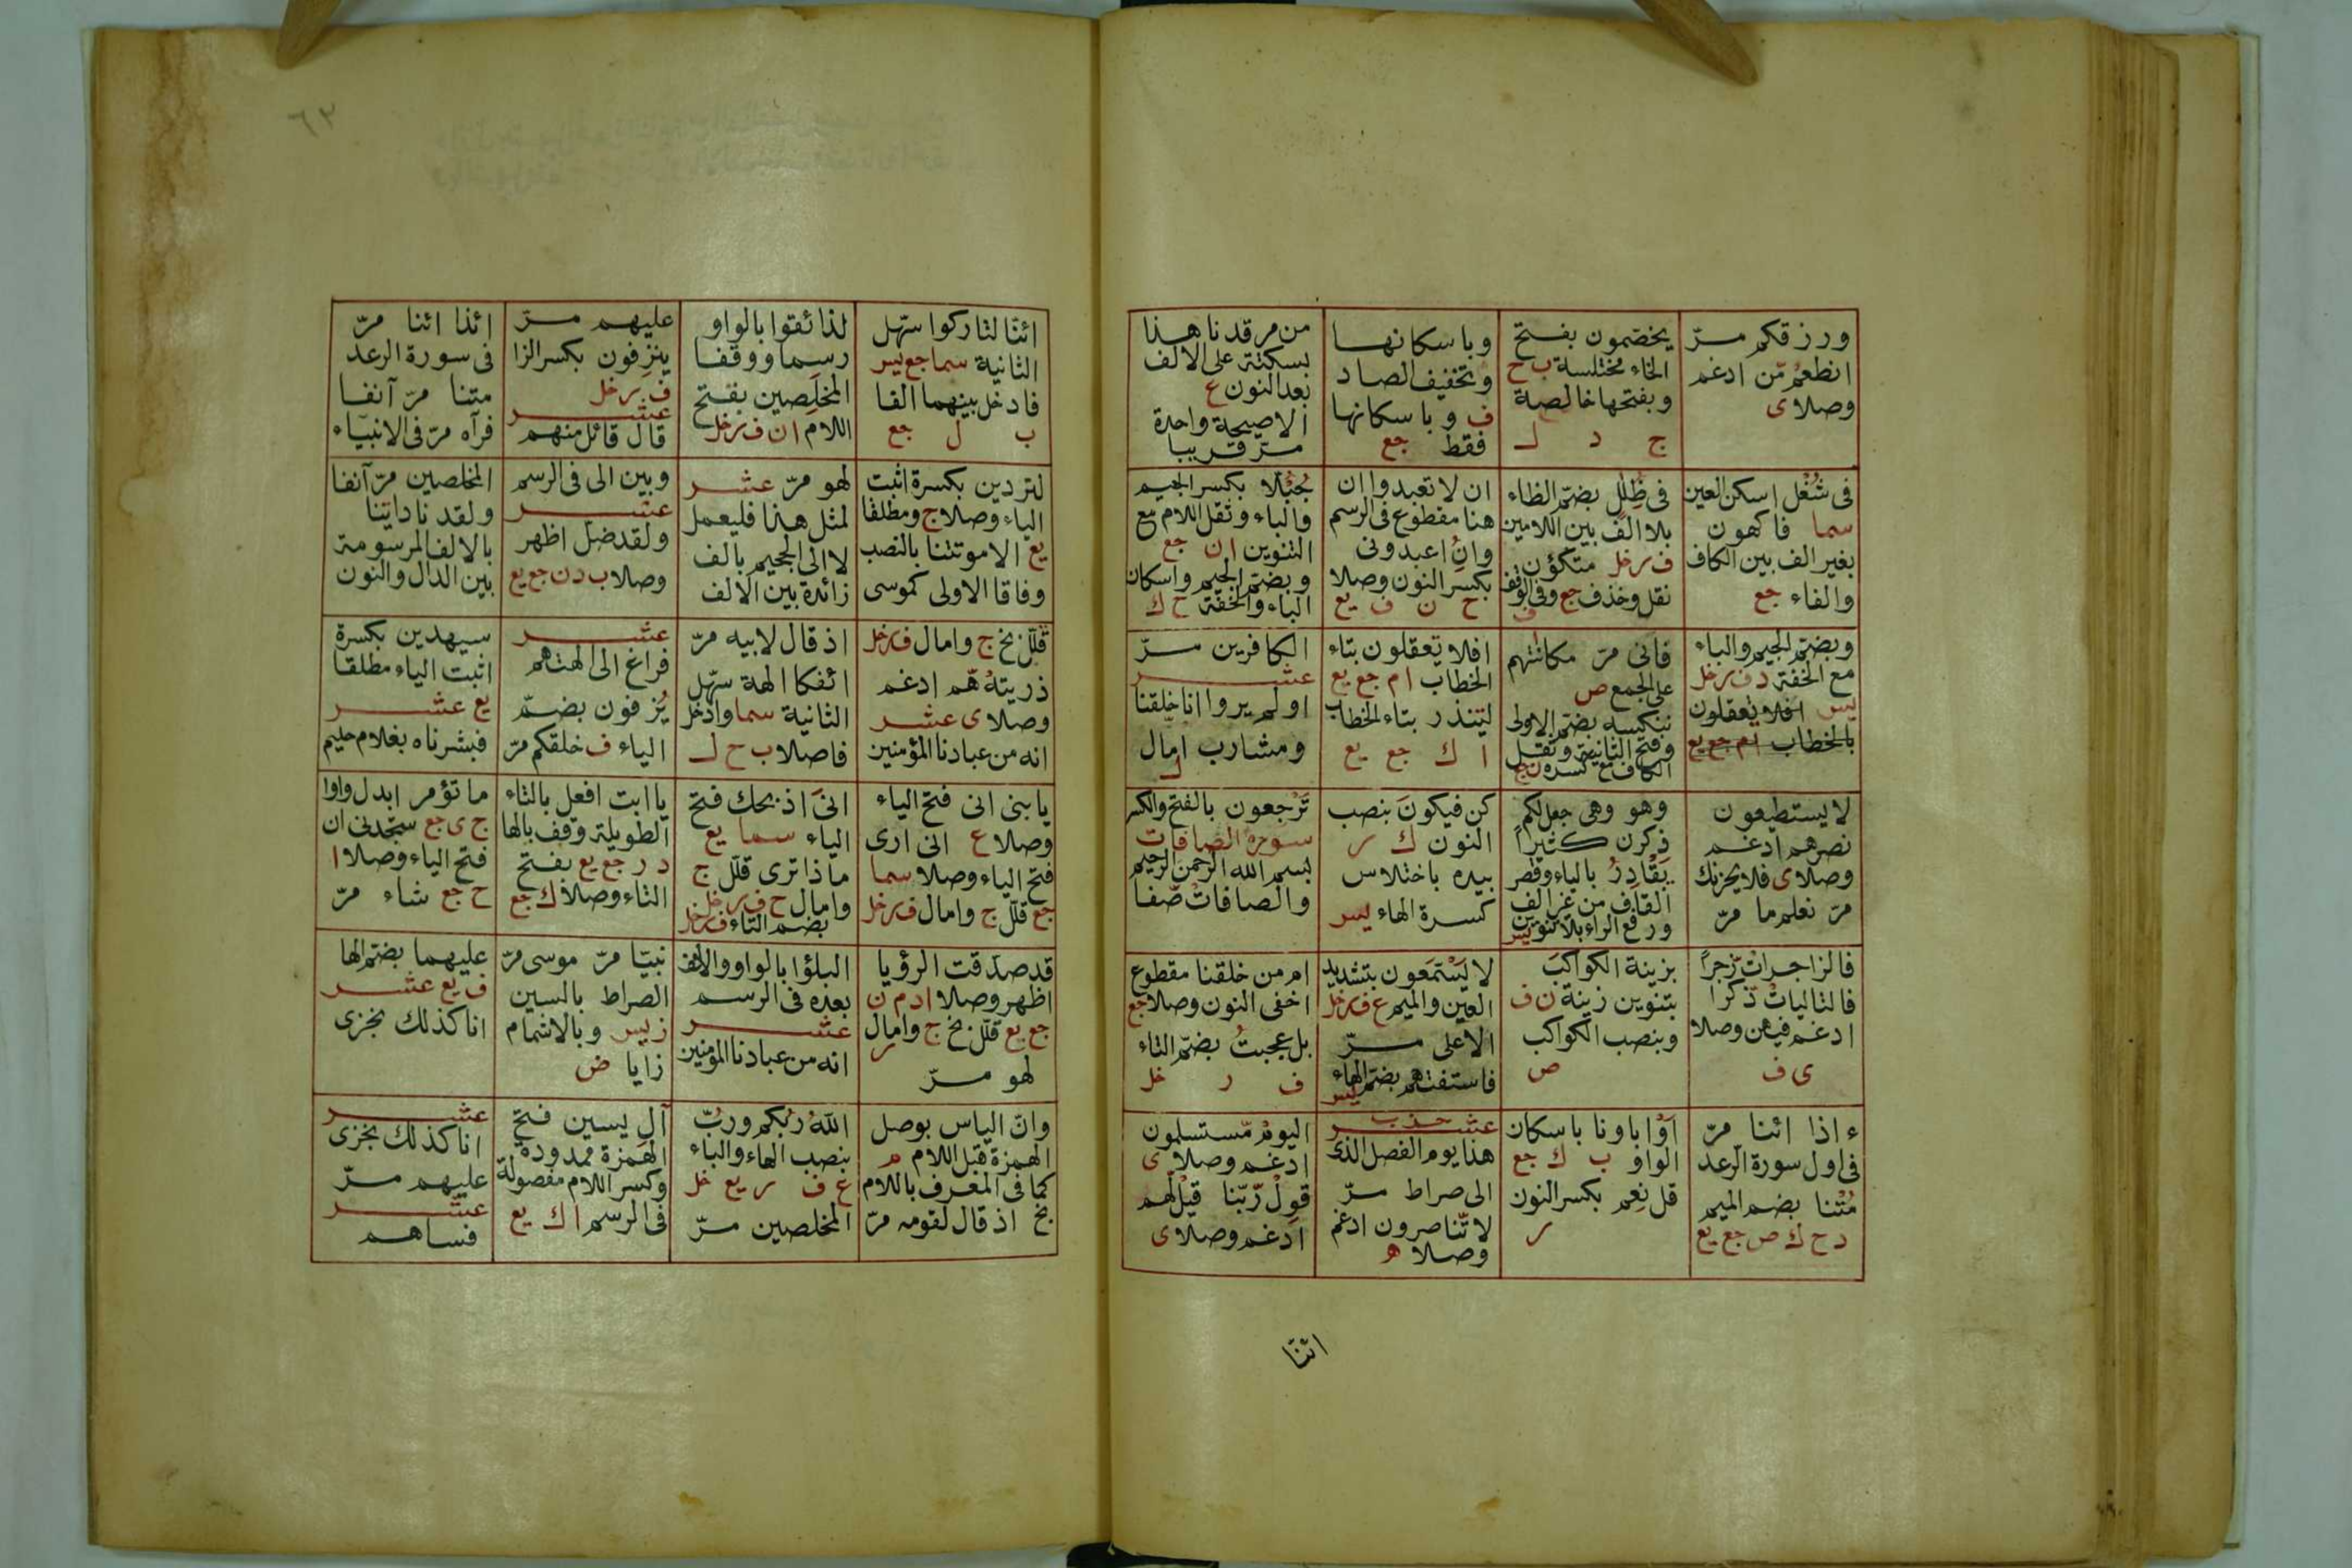 ورزقكم مرّ
انطعمُ مّن ادغم
وصلا ى
يخصّمون بفتح
الخاء مختلسة ب ح
وبفتحها خالصة
ج د ل
وباسكانها
وتخفيف الصاد
ف وباسكانها
فقط جع
من مرقدنا هذا
بسكتة على الالف
بعد النون ع
الاصيحة واحدة
مرّ قريبا
فى شُغْل اسكن العين
سما فاكهون
بغير الف بين الكاف
والفاء جع
فى ظُلَل بضمّ الظاء
بلا الف بين اللامين
ف ر خل متكؤن
نقل وخذف جع وفى الوقف
ف
ان لا تعبدوا ان
هنا مقطوع فى الرسم
وانُ اعبدونى
بكسر النون وصلا
ح ن ف يع
جُبُلّا بكسر الجيم
والباء وثقل اللام مع
التنوين ا ن جع
وبضمّ الجيم واسكان
الباء والخفّة ح ك
وبضمّ الجيم والباء
مع الخفّة د ف ر خل
يس افلا يعقلون
بالخطاب ا م جع يع
فانى مرّ مكانتهم
على الجمع ص
ننكسه بضمّ الاولى
وفتح الثانية وثقل
الكاف مع كسره ن ج
افلا تعقلون بتاء
الخطاب ا م جع يع
لتنذر بتاء الخطاب
ا ك جع يع
الكافرين مرّ
عشر
اولم يروا انا خلقنا
ومشارب امال
ل
لا يستطيعون
نصرهم ادغم
وصلا ى فلا يحزنك
مرّ نعلم ما مرّ
وهو وهى جعل لكم
ذكرن كثيراً
يَقْدِرُ بالياء وقصر
القاف من غير الف
ورفع الراء بلا تنوين يس
كن فيكونَ بنصب
النون ك ر
بيده باختلاس
كسرة الهاء يس
تَرْجعون بالفتح والكسر
سورة الصافات
بسم الله الرحمن الرحيم
والصافاتْ صّفا
فالزاجراتْ زّجراً
فالتالياتْ ذّكرا
ادغم فيهن وصلا
ى ف
بزينة الكواكبَ
بتنوين زينة ن ف
وبنصب الكواكب
ص
لا يَسّمّعون بتشديد
السين والميم ع ف ر خل
الاعلى مرّ
فاستفتهم بضمّ الهاء
يس
ام من خلقنا مقطوع
اخفى النون وصلا جع
بل عجبتُ بضمّ التاء
ف ر خل
ء اذا ائنا مرّ
فى اول سورة الرّعد
مُتْنا بضم الميم
د ح ك ص جع يع
اَوْاباونا باسكان
الواو ب ك جع
قل نِعِم بكسر النون
ر
عشر حذب
هذا يوم الفصل الذى
الى صراط مرّ
لا تّناصرون ادغم
وصلا ه
اليومْ مّستسلمون
ادغم وصلا ى
قولْ رّبّنا قيلْ لّهم
ادغم وصلا ى
ائنّا
٦٢
ائنّا لتاركوا سهّل
الثانية سما جع يس
فادخل بينهما الفا
ب ل جع
لذائقوا بالواو
رسما ووقفا
المخلَصين بفتح
اللام ا ن ف ر خل
عليهم مرّ
ينزِفون بكسر الزا
ف ر خل
عشر
قال قائل منهم
ائذا ائنا مرّ
فى سورة الرعد
متنا مرّ آنفا
فرآه مرّ فى الانبيّاء
لتردين بكسرة اثبت
الياء وصلا ج ومطلقا
يع الا موتتنا بالنصب
وفاقا الاولى كموسى
لهو مرّ عشر
لمثل هذا فليعمل
لا الى الجحيم بالف
زائدة بين الالف
وبين الى فى الرسم
عشر
ولقد ضل اظهر
وصلا ب د ن جع يع
المخلصين مرّ آنفا
ولقد نادايٰنا
بالالف المرسومة
بين الدال والنون
قلّل بخ ج وامال ف ر خل
ذريتهُ هّم ادغم
وصلا ى عشر
انه من عبادنا المؤمنين
اذ قال لابيه مرّ
ائفكا الهة سهّل
الثانية سما وادخل
فاصلا ب ح ل
عشر
فراغ الى الهتهم
يُزفون بضمّ
الياء ف خلقكم مرّ
سيهدين بكسرة
اثبت الياء مطلقا
يع عشر
فبشرناه بغلام حليم
يابنى انى فتح الياء
وصلا ع انى ارى
فتح الياء وصلا سما
جع قلّل ج وامال ف ر خل
انىَ اذبحك فتح
الياء سما يع
ماذا ترى قلّل ج
وامال ح ف ر خل
بضم التاء ف ر خل
ياابت افعل بالتاء
الطويلة وقف بالها
د ر جع يع بفتح
التاء وصلا ك جع
ما تؤمر ابدل واوا
ج ى جع ستجدنى ان
فتح الياء وصلا ا
ح جع شاء مرّ
قد صدّقت الرؤيا
اظهر وصلا ا د م ن
جع يع قلّل بخ ج وامال
ر
لهو مرّ
البلؤا بالواو والالف
بعده فى الرسم
عشر
انه من عبادنا المؤمنين
نبيّا مرّ موسى مرّ
الصراط بالسين
ز يس وبالاشمام
زايا ض
عليهما بضمّ الها
ف يع عشر
انا كذلك نجزى
وانّ الياس بوصل
الهمزة قبل اللام م
كما فى المعرف باللام
بخ اذ قال لقومه مرّ
اللهَ ربَّكم وربَّ
بنصب الهاء والباء
ع ف ر يع خل
المخلصين مرّ
آلِ يسين فتح
الهمزة ممدودة
وكسر اللام مفصولة
فى الرسم ا ك يع
عشر
انا كذلك نجزى
عليهم مرّ
عشر
فساهم